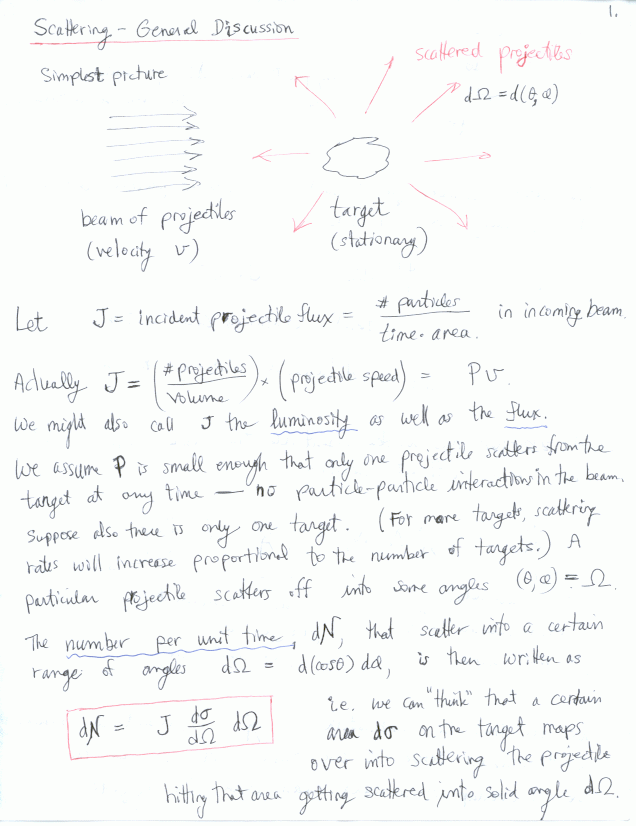 1.
Scattering - General Discussion
scattered projectiles
Simplest picture
dΩ = d(θ, φ)
beam of projectiles
(velocity v)
target
(stationary)
Let J = incident projectile flux = # particles / time · area. in incoming beam.
Actually J = (#projectiles / Volume) × (projectile speed) = ρ v.
We might also call J the luminosity as well as the flux.
We assume ρ is small enough that only one projectile scatters from the
target at any time — no particle-particle interactions in the beam.
Suppose also there is only one target. (For more targets, scattering
rates will increase proportional to the number of targets.) A
particular projectile scatters off into some angles (θ, φ) = Ω.
The number per unit time, dN, that scatter into a certain
range of angles dΩ = d(cosθ) dφ, is then written as
dN = J dσ/dΩ dΩ
i.e. we can "think" that a certain
area dσ on the target maps
over into scattering the projectile
hitting that area getting scattered into solid angle dΩ.